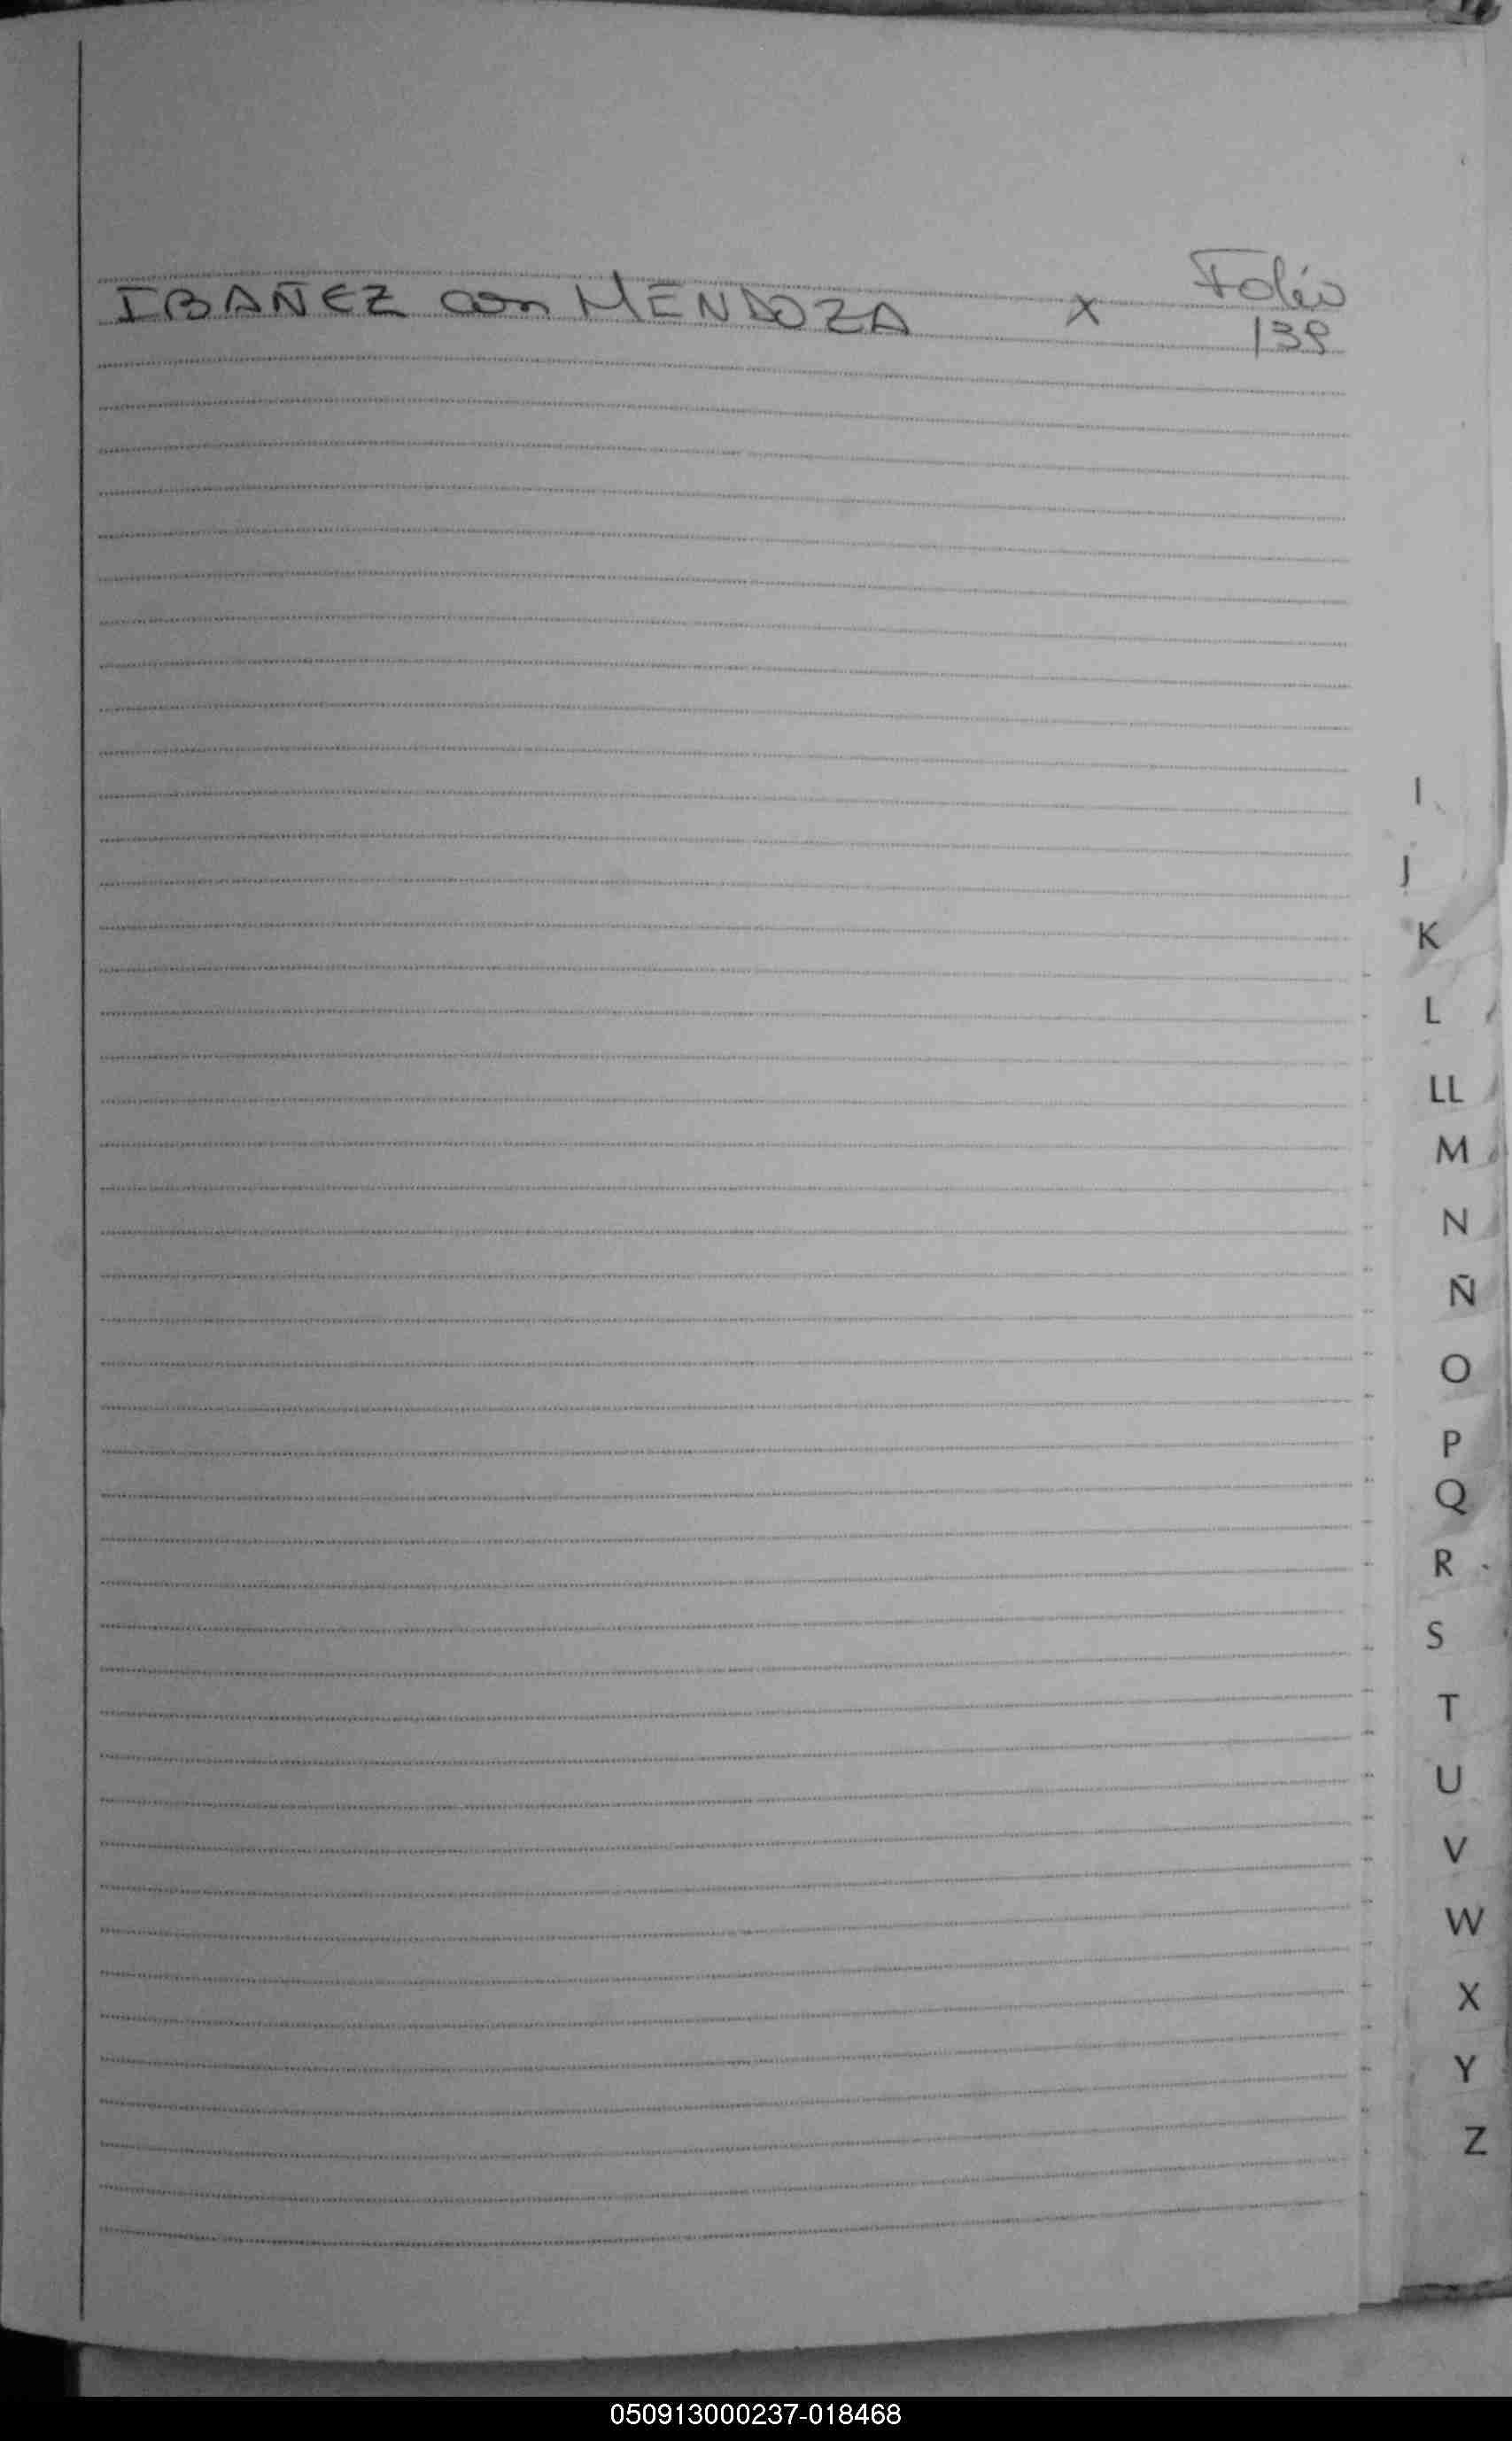 Folio
IBAÑEZ con MENDOZA x 139
I
J
K
L
LL
M
N
Ñ
O
P
Q
R
S
T
U
V
W
X
Y
Z
050913000237-018468